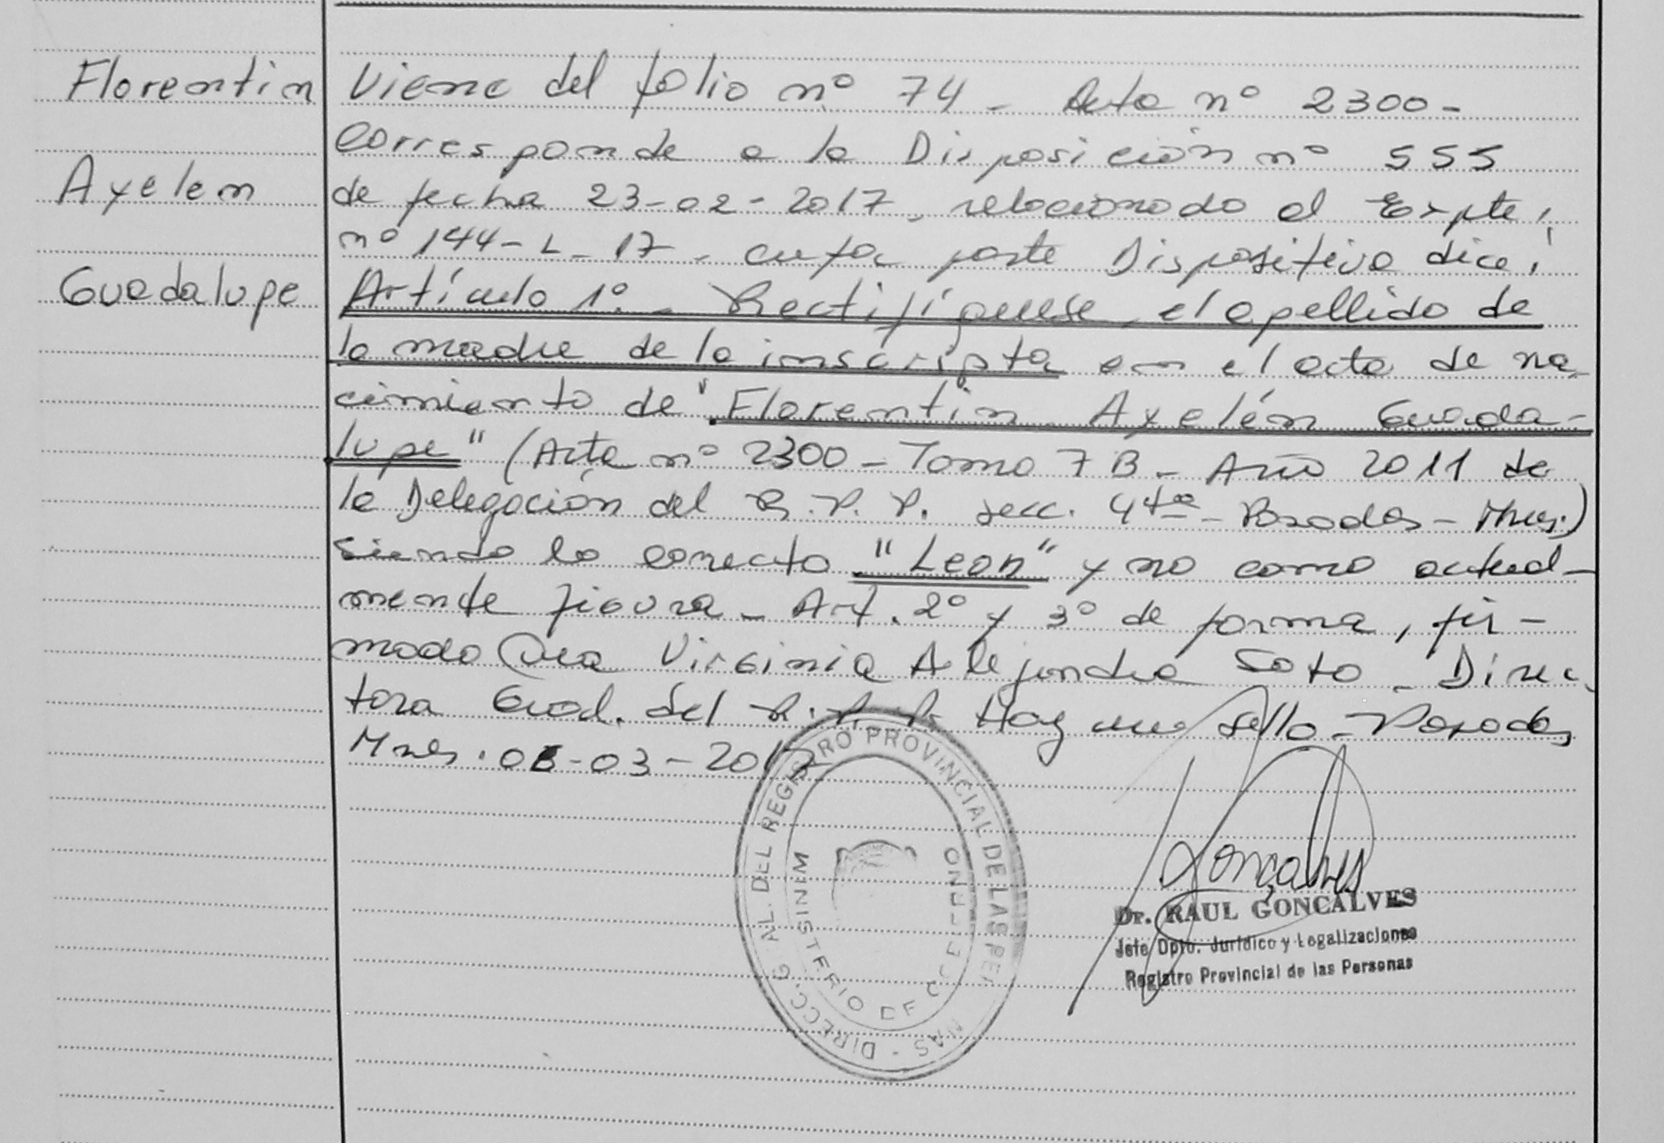 Florentin
Axelem
Guadalupe
Viene del folio nº 74 - Acta nº 2300 -
Corresponde a la Disposición nº 555
de fecha 23-02-2017, relacionado al Expte,
nº 144-L-17- cuya parte Dispositiva dice,
Artículo 1º.- Rectifíquese, el apellido de
la madre de la inscripta en el acta de na
cimiento de "Florentin Axelén Guada-
lupe" (Acta nº 2300 - Tomo 7 B - Año 2011 de
la Delegación del R.P.P. secc. 4ta - Posadas - Mnes.)
siendo lo correcto "Leon" y no como actual-
mente figura - Art. 2º y 3º de forma, fir-
mado Dra Virginia Alejandra Soto - Direc
tora Gral. del R.P.P. Hay un sello - Posadas
Mnes. 06-03-2017
DIRECC. G AL. DEL REGISTRO PROVINCIAL DE LAS PER NAS -
MINISTERIO DE GOBIERNO
Gonçalves
Dr. RAUL GONCALVES
Jefe Dpto. Jurídico y Legalizaciones
Registro Provincial de las Personas